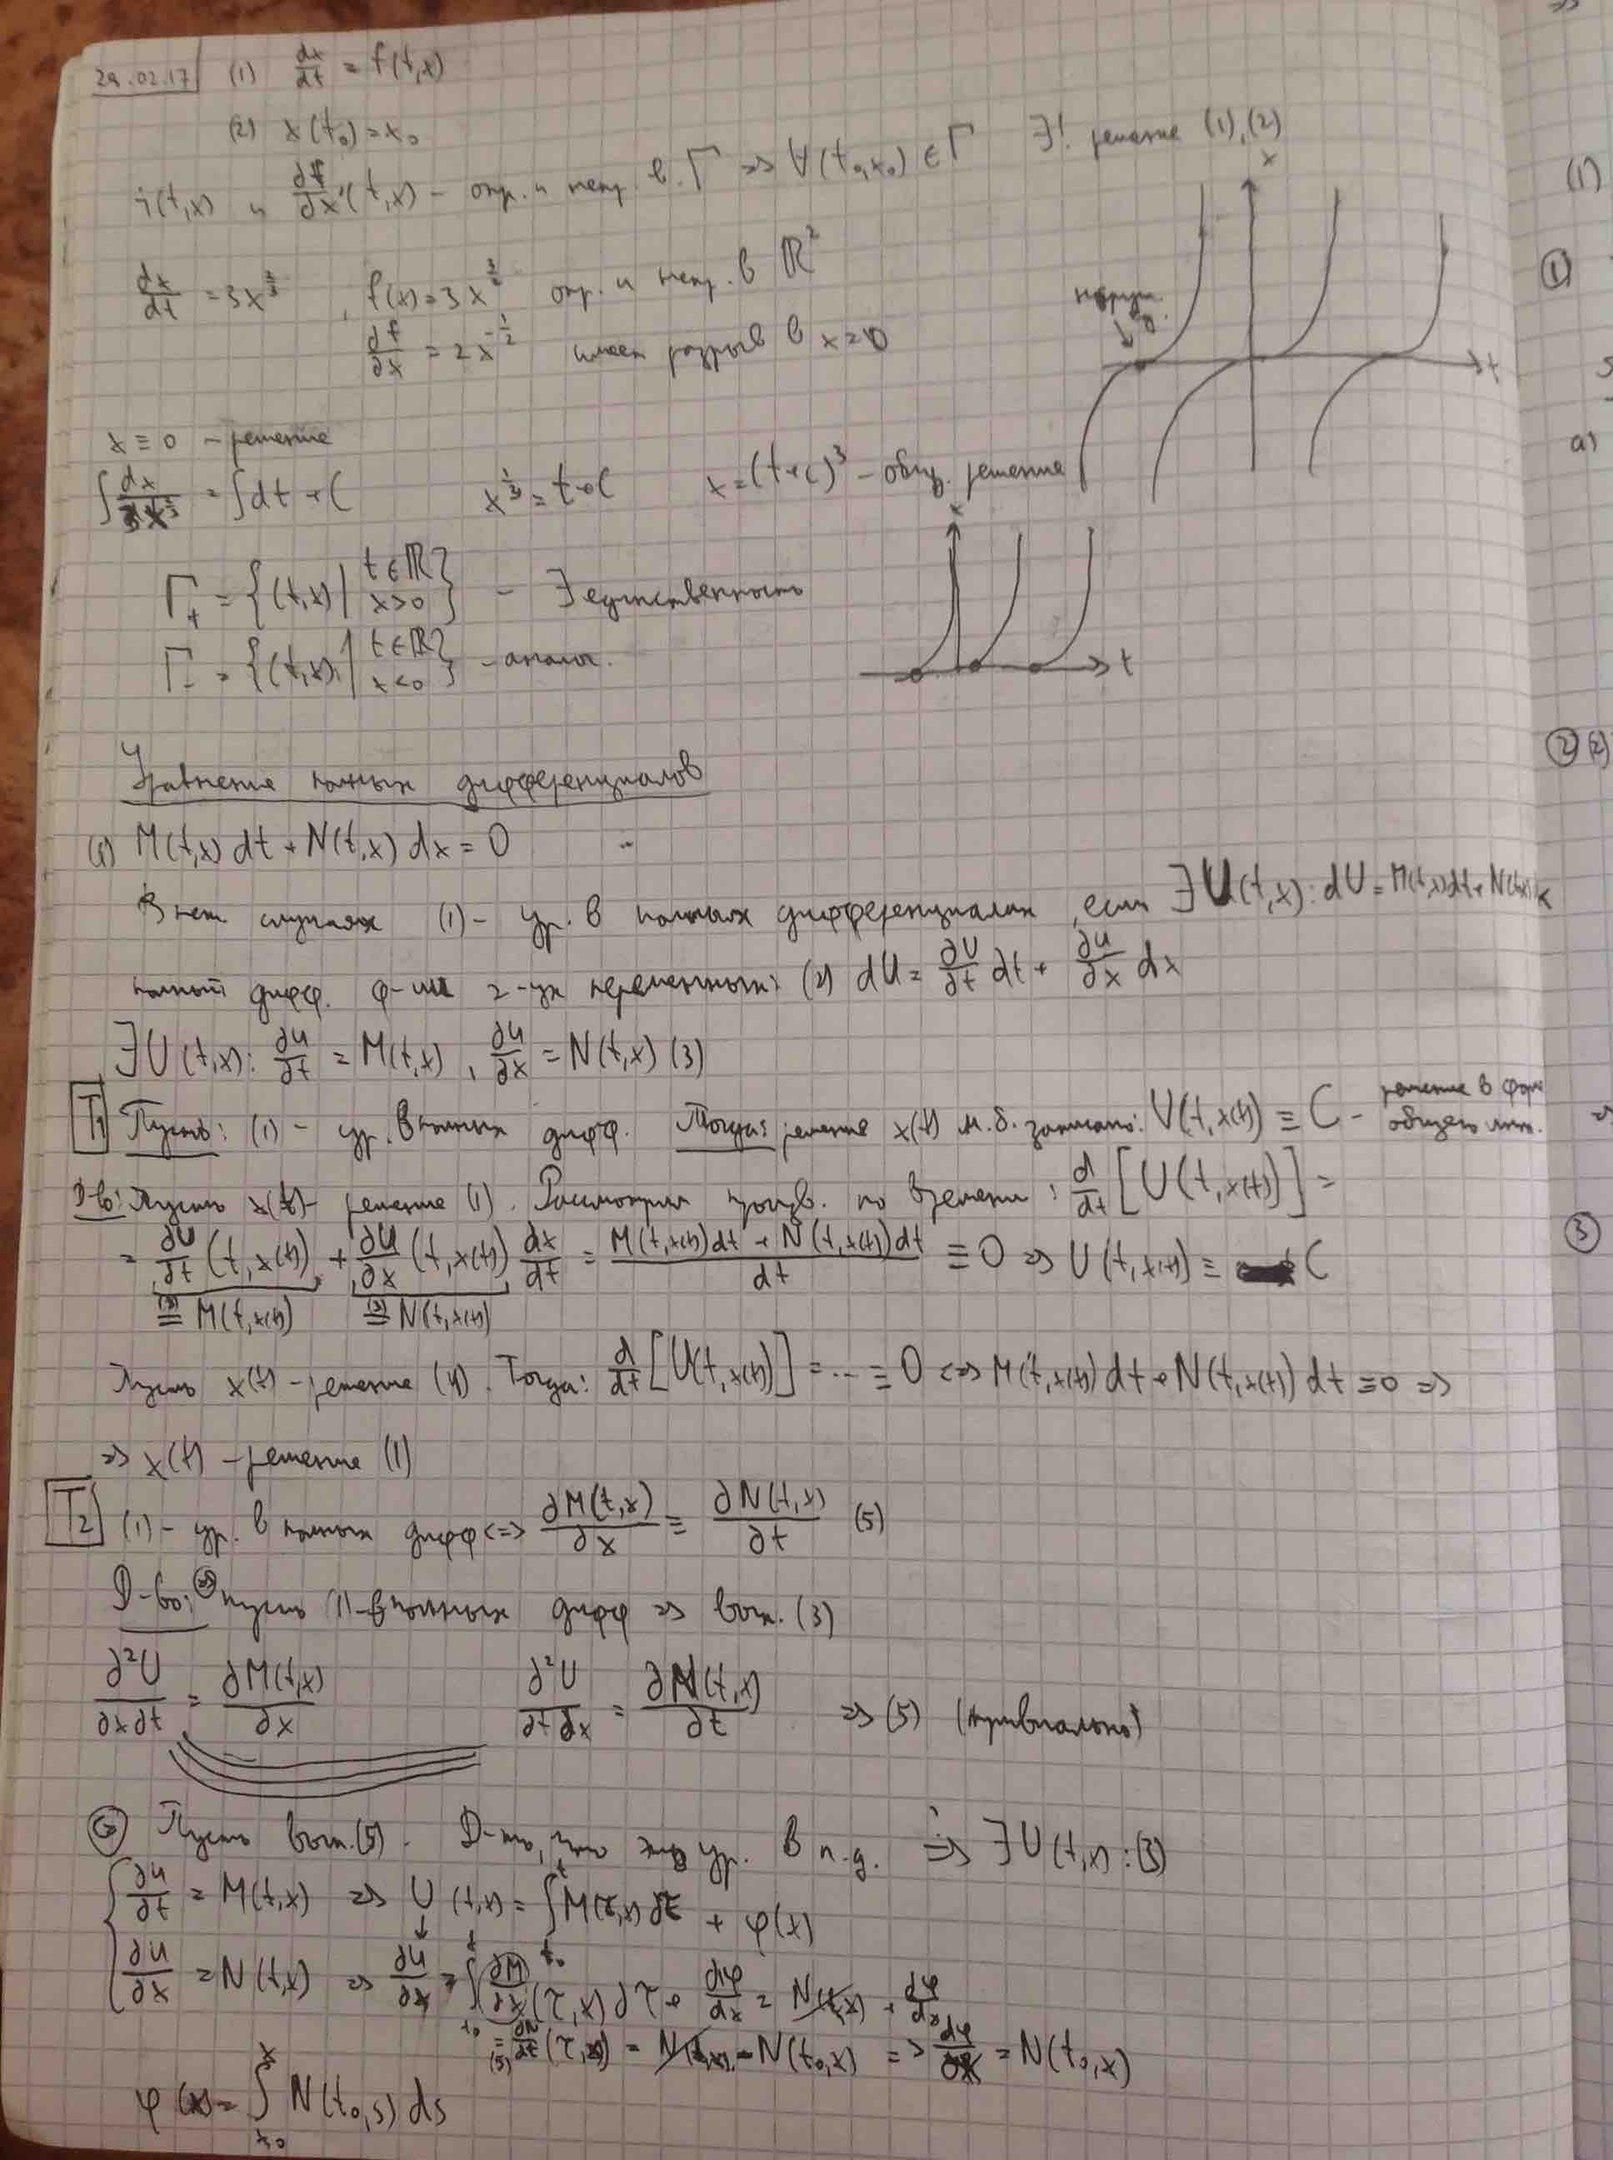 29.02.17 (1) dx/dt = f(t,x)
(2) x(t₀) = x₀
f(t,x) и ∂f/∂x (t,x) – опр. и непр. в Γ => ∀(t₀,x₀) ∈ Γ ∃! решение (1),(2)
dx/dt = 3x^{2/3}, f(x) = 3x опр. и непр. в ℝ²
∂f/∂x = 2x имеет разрыв в x=0
наруш.
x
t
x ≡ 0 – решение
∫ dx/3x^{2/3} = ∫dt + C x^{1/3} = t+C x = (t+C)³ – общ. решение
Γ₊ = {(t,x) | t∈ℝ x>0} – ∃ единственность
Γ₋ = {(t,x) | t∈ℝ x<0} – аналог.
x
t
Уравнение полных дифференциалов
(1) M(t,x) dt + N(t,x) dx = 0
В нек. случаях (1) – ур. в полных дифференциалах, если ∃U(t,x): dU = M(t,x)dt + N(t,x)dx
полный дифф. ф-ии 2-ух переменных: (2) dU = ∂U/∂t dt + ∂u/∂x dx
∃U(t,x): ∂u/∂t = M(t,x), ∂u/∂x = N(t,x) (3)
T₁ Пусть: (1) – ур. в полных дифф. Тогда: решение x(t) м.б. записано: U(t,x(t)) ≡ C – решение в форм общего инт.
Д-во: Пусть x(t) – решение (1). Рассмотрим произв. по времени: d/dt [U(t,x(t))] =
= ∂U/∂t (t,x(t)) + ∂U/∂x (t,x(t)) dx/dt = (M(t,x(t))dt + N(t,x(t))dt)/dt ≡ 0 => U(t,x(t)) ≡ C
(3)≡ M(t,x(t)) (3)≡ N(t,x(t))
Пусть x(t) – решение (4). Тогда: d/dt [U(t,x(t))] = ... ≡ 0 <=> M(t,x(t)) dt + N(t,x(t)) dt ≡ 0 =>
=> x(t) – решение (1)
T₂ (1) – ур. в полных дифф <=> ∂M(t,x)/∂x ≡ ∂N(t,x)/∂t (5)
Д-во: => Пусть (1) – в полных дифф => вып. (3)
∂²U/∂x∂t = ∂M(t,x)/∂x ∂²U/∂t∂x = ∂N(t,x)/∂t => (5) (тривиально)
<= Пусть вып. (5). Д-ть, что это ур. в п.д. => ∃U(t,x): (3)
{ ∂u/∂t = M(t,x) => U(t,x) = ∫_{t₀}^{t} M(τ,x) dτ + φ(x)
∂u/∂x = N(t,x) => ∂u/∂x = ∫_{t₀}^{t} ∂M/∂x (τ,x) dτ + dφ/dx = N(t,x) + dφ/dx
=(5) ∂N/∂t (τ,x) = N(t,x) – N(t₀,x) => dφ/dx = N(t₀,x)
φ(x) = ∫_{x₀}^{x} N(t₀,s) ds
(1)
①
а)
② (2)
③